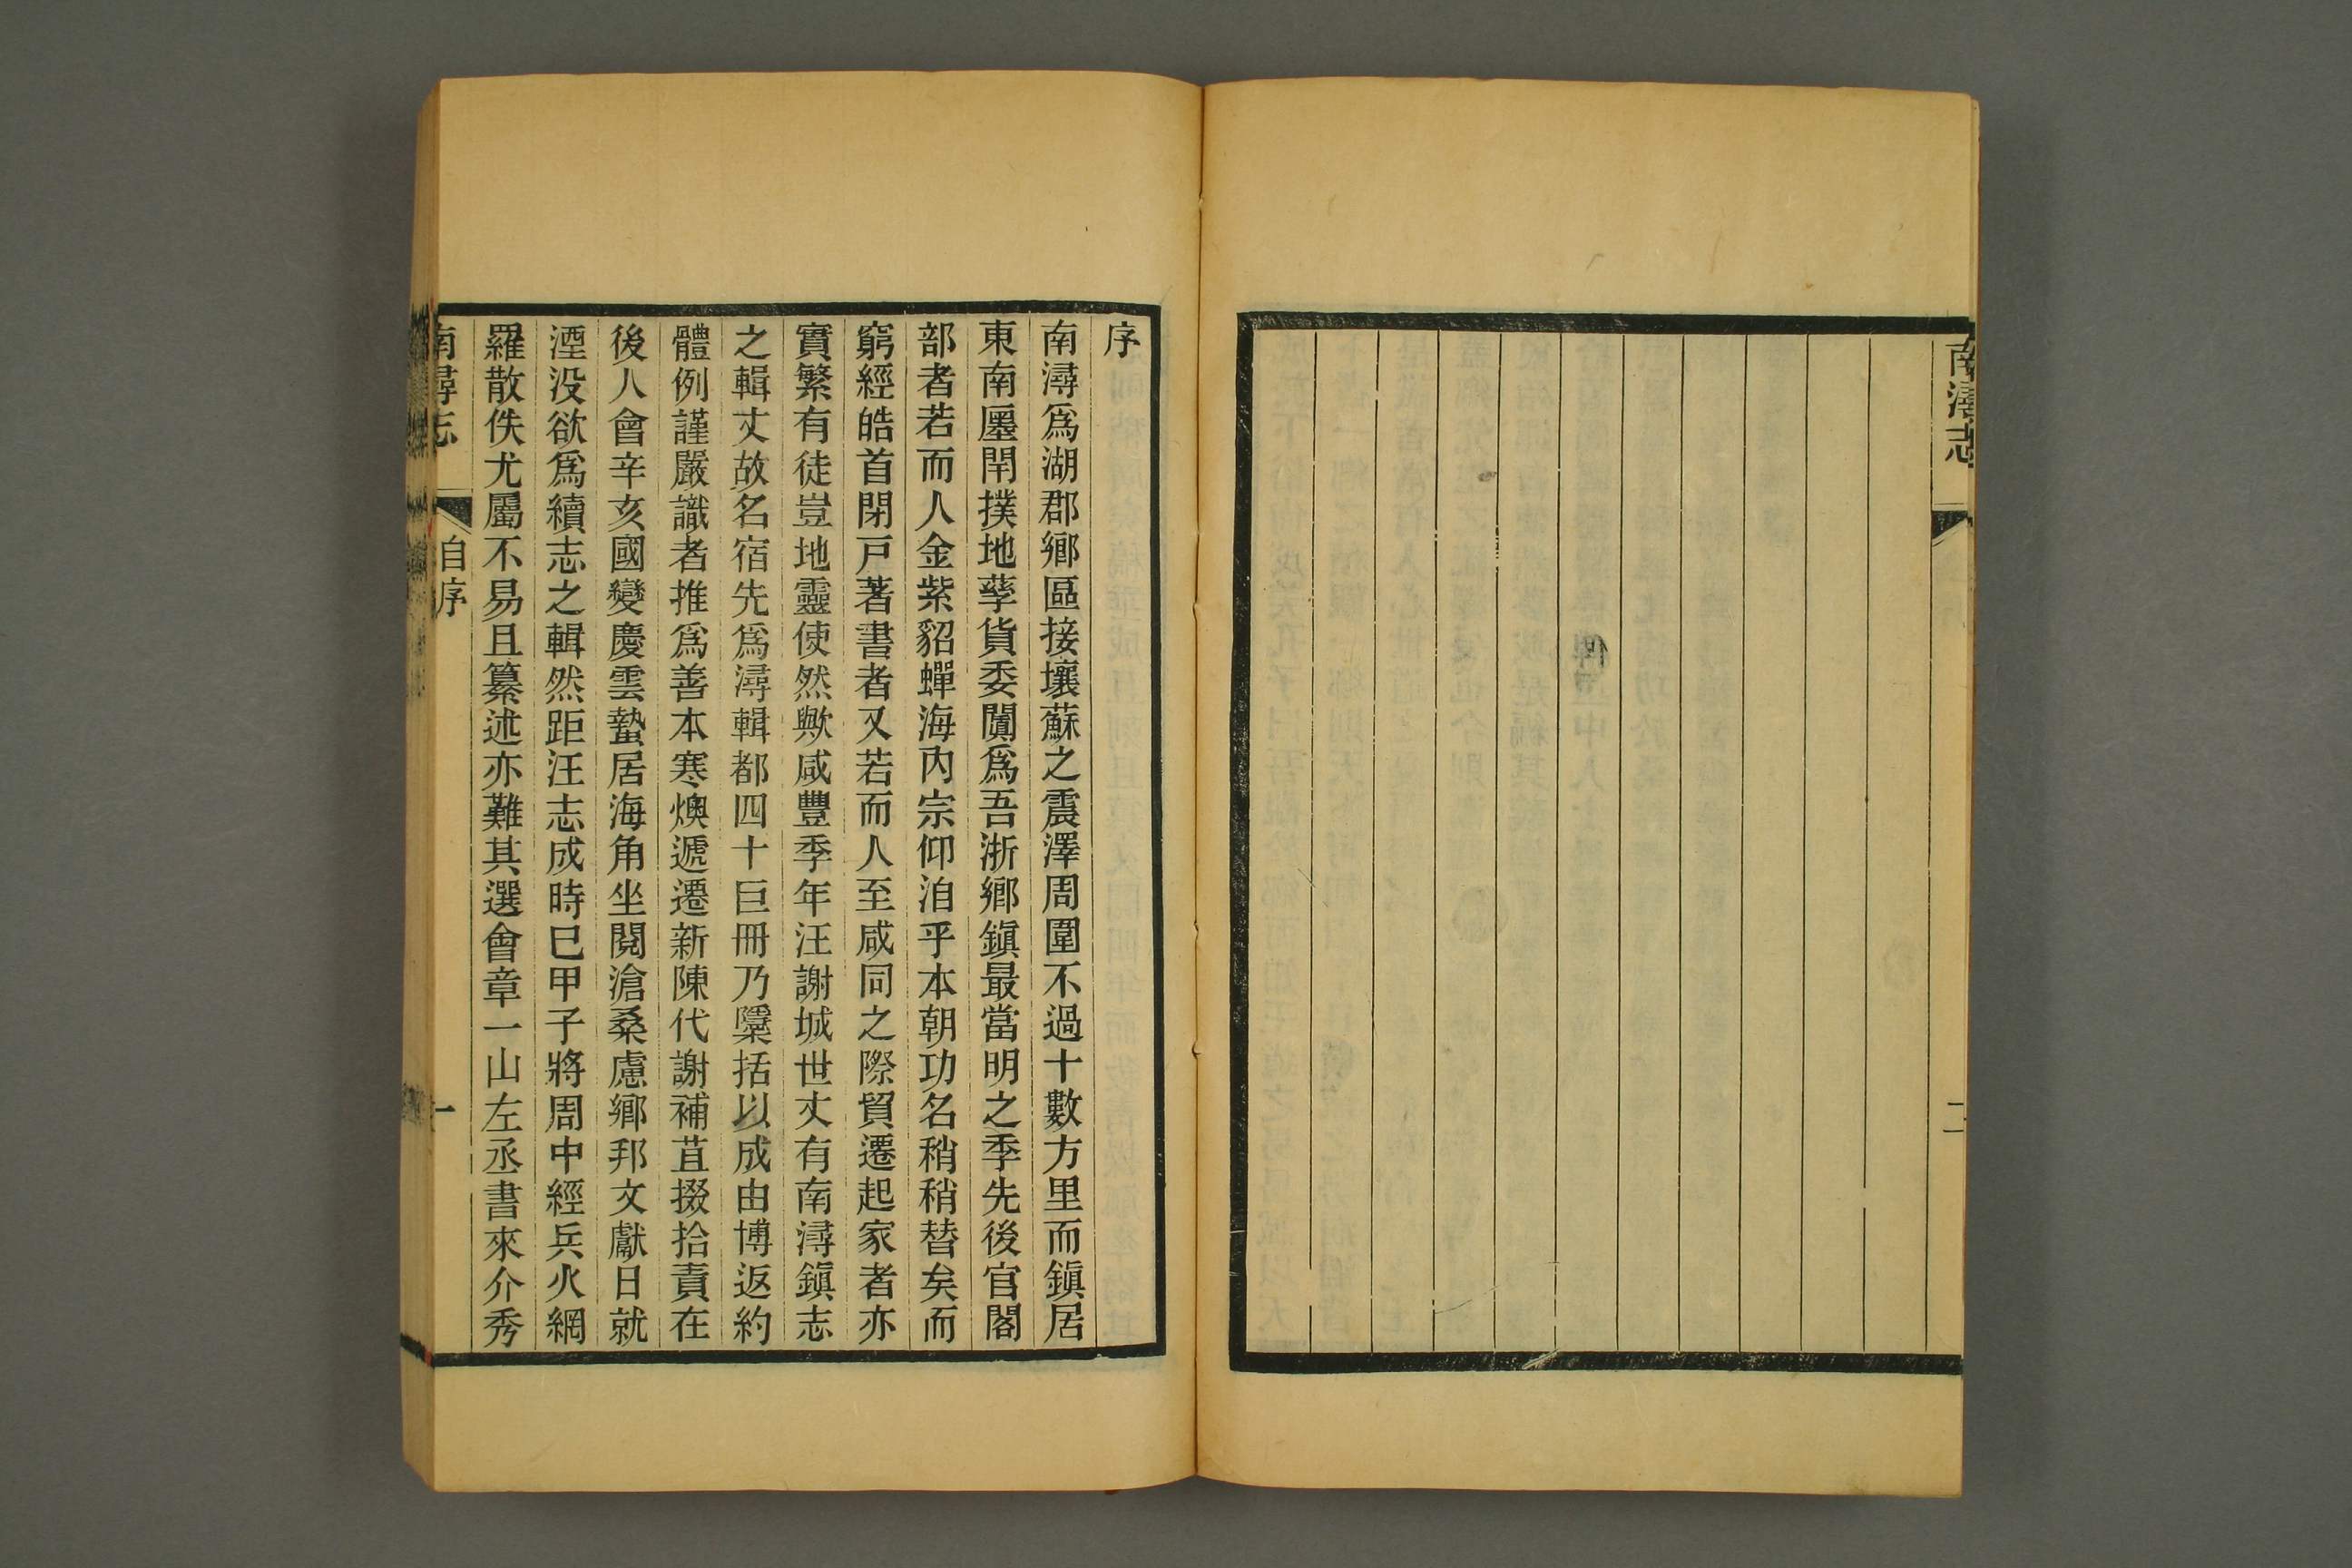 南潯志
二
序
南潯爲湖郡鄉區接壤蘇之震澤周圍不過十數方里而鎭居
東南廛閈撲地孳貨委闐爲吾浙鄉鎭最當明之季先後官閣
部者若而人金紫貂蟬海內宗仰洎乎本朝功名稍稍替矣而
窮經皓首閉戸著書者又若而人至咸同之際貿遷起家者亦
實繁有徒豈地靈使然歟咸豐季年汪謝城世丈有南潯鎭志
之輯丈故名宿先爲潯輯都四十巨冊乃檃括以成由博返約
體例謹嚴識者推爲善本寒燠遞遷新陳代謝補苴掇拾責在
後人會辛亥國變慶雲蟄居海角坐閱滄桑慮鄉邦文獻日就
湮没欲爲續志之輯然距汪志成時已甲子將周中經兵火網
羅散佚尤屬不易且纂述亦難其選會章一山左丞書來介秀
南潯志
自序
一